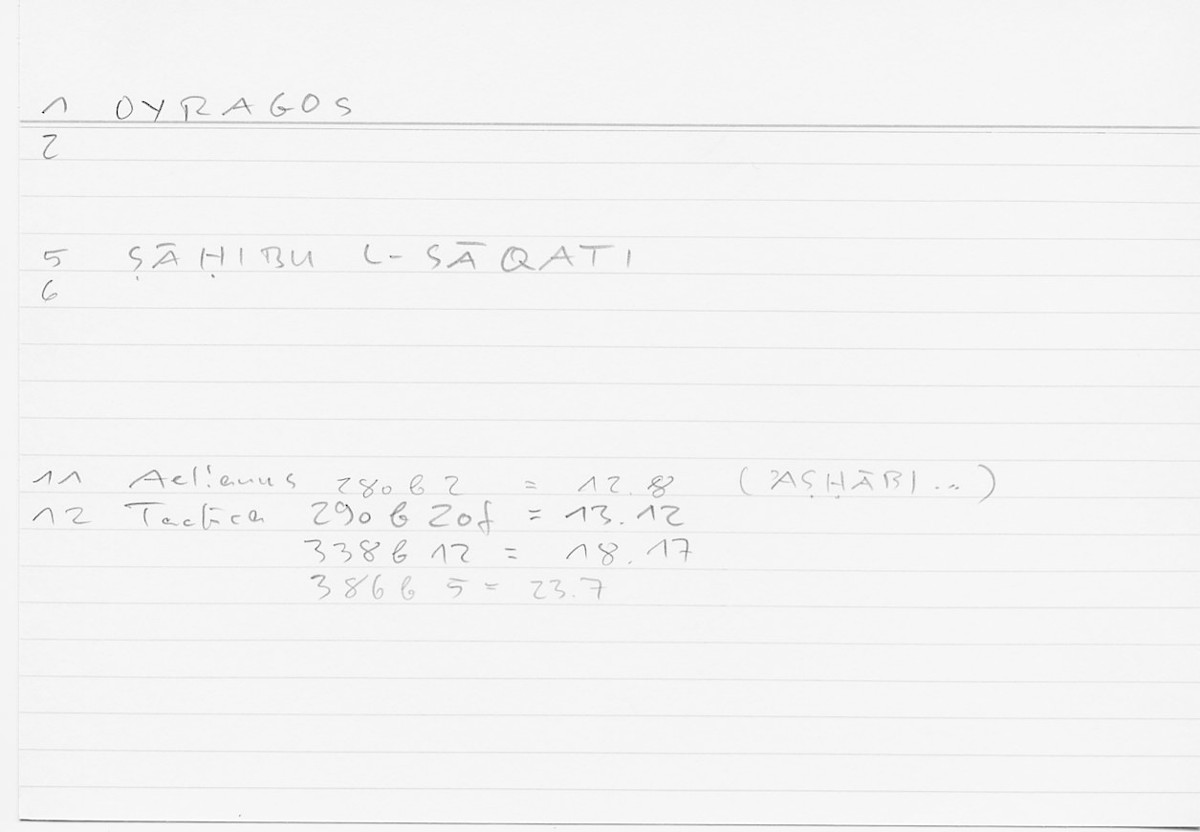 1 OYRAGOS
2
5 ṢĀḤIBU L-SĀQATI
6
11 Aelianus 280 b 2 = 12.8 (ʾAṢḤĀBI...)
12 Tactica 290 b 20f = 13.12
338 b 12 = 18.17
386 b 5 = 23.7